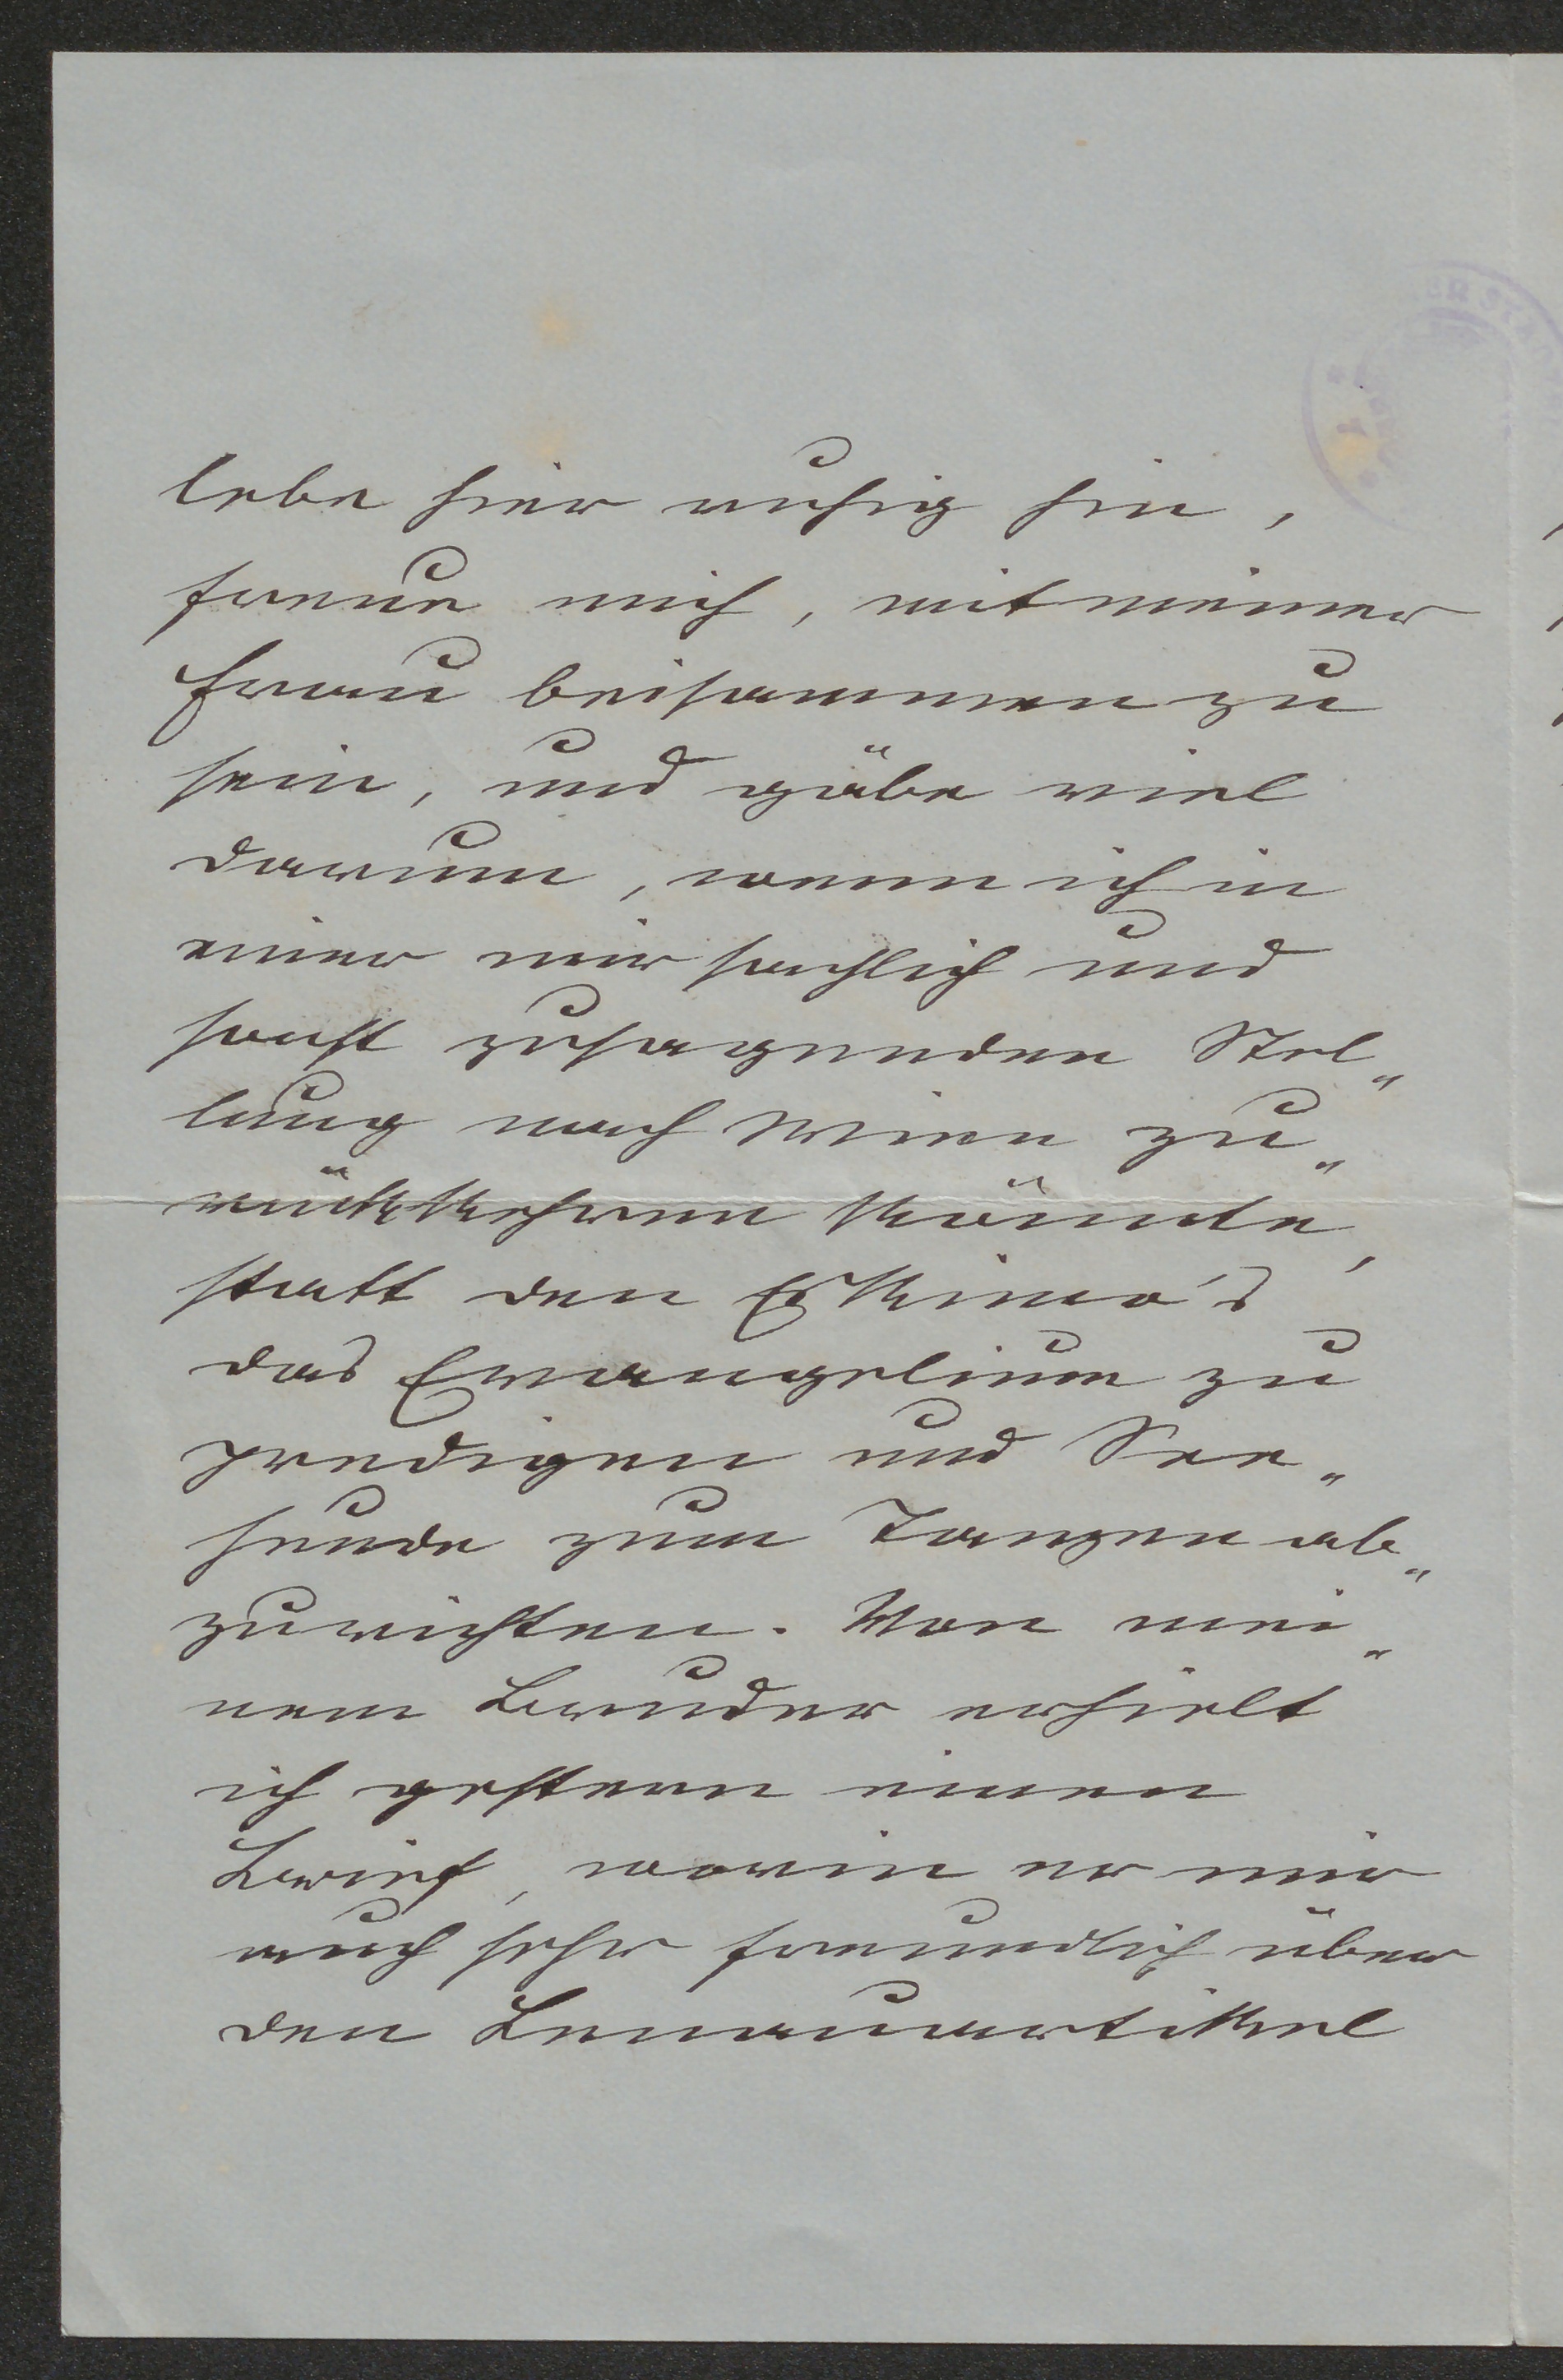 lebe hier ruhig hin,
freue mich, mit meiner
Frau beisammen zu
sein, und gäbe viel
darum, wenn ich in
einer mir sachlich und
sonst zusagenden Stel„
lung nach Wien zu„
rückkehren könnte,
statt den Eskimo's
das Evangelium zu
predigen und See„
hunde zum Tanzen ab„
zurichten. Von mei„
nem Bruder erhielt
ich gestern einen
Brief, worin er mir
auch sehr freundlich über
den Lenauartikel